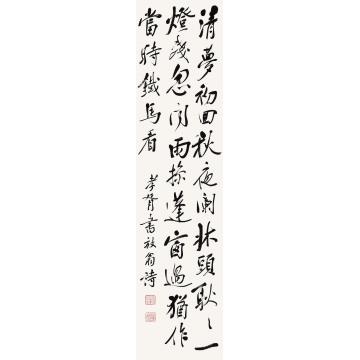 清夢初回秋夜闌牀頭耿々一
燈殘忽聞雨掠蓬窗過猶作
當時鐵馬看
孝胥書放翁詩